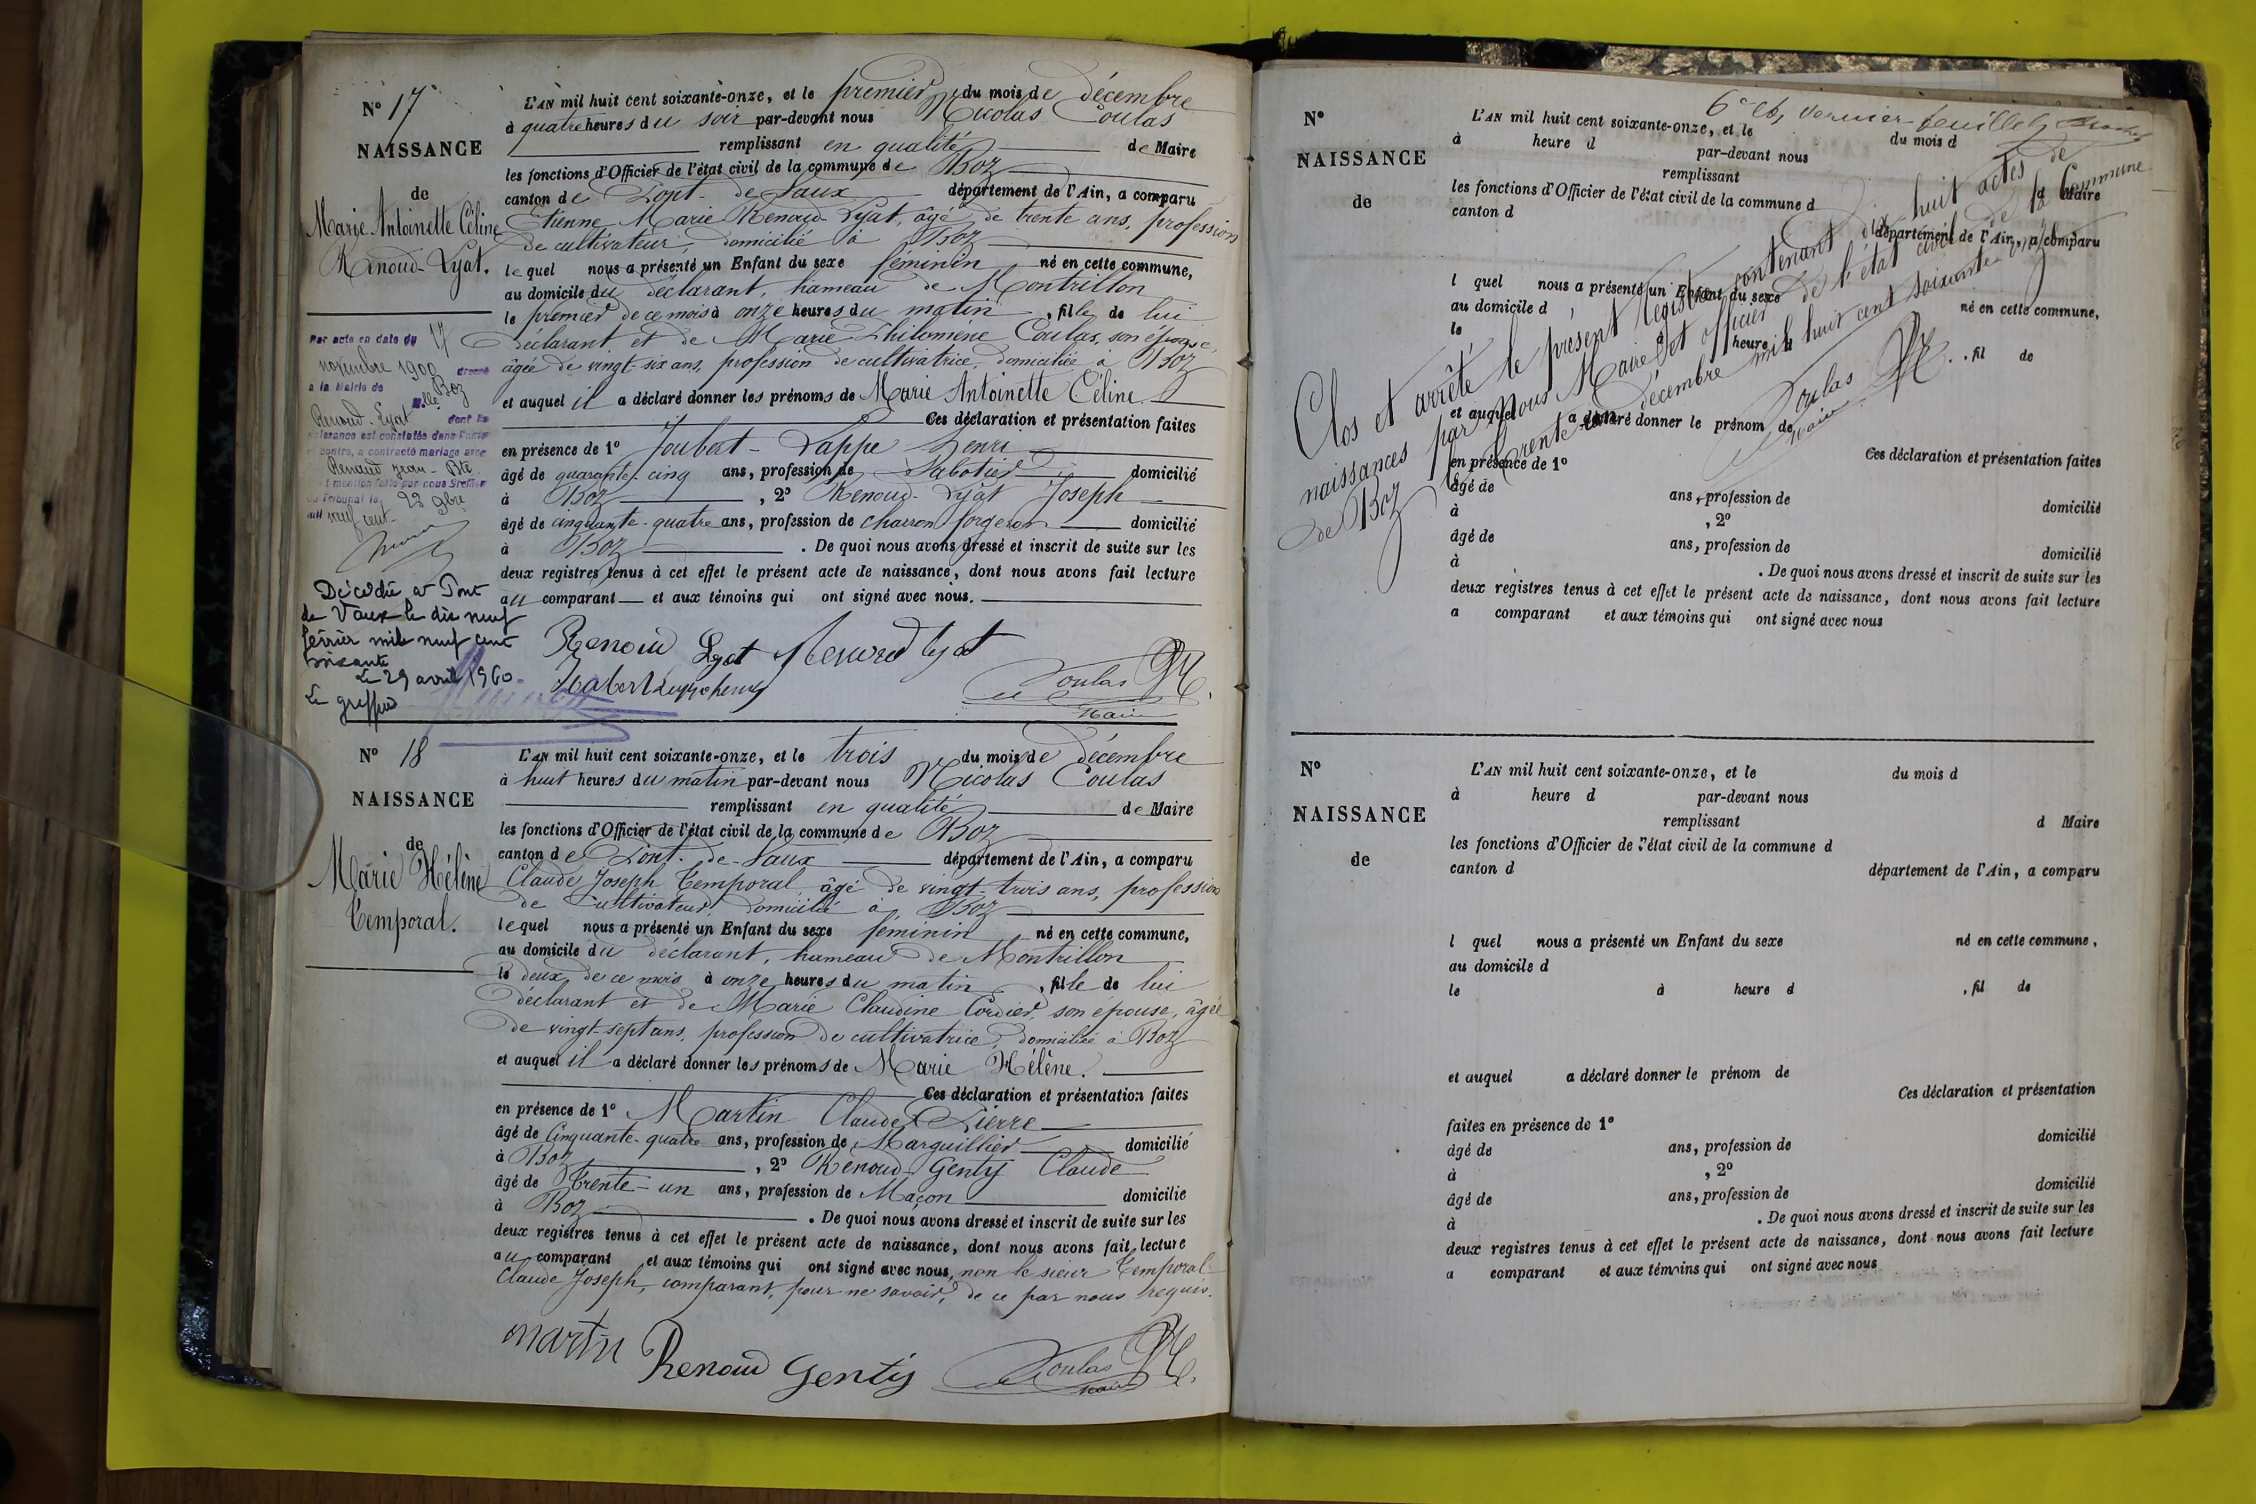 N° 17
NAISSANCE
de
Marie Antoinette Céline
Renoud-Lyat.
Par acte en date du 17
novembre 1900 dressé
à la Mairie de Boz
M.lle
Renoud-Lyat dont la
naissance est constatée dans l'acte
ci-contre, a contracté mariage avec
Renaud Jean-Bte
mention faite par nous Greffier
du Tribunal le 23 9bre
mil neuf cent
Décédée à Pont
de Vaux le dix neuf
février mil neuf cent
soixante
Le 29 avril 1960
Le greffier
L'AN mil huit cent soixante-onze, et le premier du mois de décembre
à quatre heures du soir par-devant nous Nicolas Coulas
remplissant en qualité de Maire
les fonctions d'Officier de l'état civil de la commune de Boz
canton de Pont-de-Vaux département de l'Ain, a comparu
Etienne Marie Renoud-Lyat, âgé de trente ans, profession
de cultivateur, domicilié à Boz
lequel nous a présenté un Enfant du sexe féminin né en cette commune,
au domicile du déclarant, hameau de Montrillon
le premier de ce mois à onze heures du matin, fille de lui
déclarant et de Marie Philomène Coulas, son épouse,
âgée de vingt-six ans, profession de cultivatrice, domiciliée à Boz
et auquel il a déclaré donner les prénoms de Marie Antoinette Céline.
Ces déclaration et présentation faites
en présence de 1° Joubert-Lappe Henri
âgé de quarante-cinq ans, profession de Sabotier domicilié
à Boz, 2° Renoud-Lyat Joseph
âgé de cinquante-quatre ans, profession de charron-forgeron domicilié
à Boz. De quoi nous avons dressé et inscrit de suite sur les
deux registres tenus à cet effet le présent acte de naissance, dont nous avons fait lecture
au comparant et aux témoins qui ont signé avec nous.
Renoud Lyat Renoud Lyat
Coulas
Maire
N° 18
NAISSANCE
de
Marie Hélène
Temporal.
L'AN mil huit cent soixante-onze, et le trois du mois de décembre
à huit heures du matin par-devant nous Nicolas Coulas
remplissant en qualité de Maire
les fonctions d'Officier de l'état civil de la commune de Boz
canton de Pont-de-Vaux département de l'Ain, a comparu
Claude Joseph Temporal, âgé de vingt-trois ans, profession
de Cultivateur, domicilié à Boz
lequel nous a présenté un Enfant du sexe féminin né en cette commune,
au domicile du déclarant, hameau de Montrillon
le deux de ce mois à onze heures du matin, fille de lui
déclarant et de Marie Claudine Cordier, son épouse, âgée
de vingt-sept ans, profession de cultivatrice, domiciliée à Boz
et auquel il a déclaré donner les prénoms de Marie Hélène.
Ces déclaration et présentation faites
en présence de 1° Martin Claude Pierre
âgé de Cinquante-quatre ans, profession de Marguillier domicilié
à Boz, 2° Renoud Genty Claude
âgé de Trente-un ans, profession de Maçon domicilié
à Boz. De quoi nous avons dressé et inscrit de suite sur les
deux registres tenus à cet effet le présent acte de naissance, dont nous avons fait lecture
au comparant et aux témoins qui ont signé avec nous, non le sieur Temporal
Claude Joseph, comparant, pour ne savoir, de ce par nous requis.
martin Renoud Gentis Coulas
Maire
6e et dernier feuillet
N°
NAISSANCE
de
L'AN mil huit cent soixante-onze, et le du mois d
à heure d par-devant nous
remplissant d Maire
les fonctions d'Officier de l'état civil de la commune d
canton d département de l'Ain, a comparu
l quel nous a présenté un Enfant du sexe né en cette commune,
au domicile d
le heure d, fil de
et auquel a déclaré donner le prénom de
Ces déclaration et présentation faites
en présence de 1°
âgé de ans, profession de domicilié
à , 2°
âgé de ans, profession de domicilié
à . De quoi nous avons dressé et inscrit de suite sur les
deux registres tenus à cet effet le présent acte de naissance, dont nous avons fait lecture
a comparant et aux témoins qui ont signé avec nous
Clos et arrêté le présent Registre contenant dix huit actes de
naissances par Nous Maire et officier de l'état civil de la Commune
de Boz le trente un décembre mil huit cent soixante-onze
Coulas
Maire
N°
NAISSANCE
de
L'AN mil huit cent soixante-onze, et le du mois d
à heure d par-devant nous
remplissant d Maire
les fonctions d'Officier de l'état civil de la commune d
canton d département de l'Ain, a comparu
l quel nous a présenté un Enfant du sexe né en cette commune,
au domicile d
le à heure d , fil de
et auquel a déclaré donner le prénom de
Ces déclaration et présentation
faites en présence de 1°
âgé de ans, profession de domicilié
à , 2°
âgé de ans, profession de domicilié
à . De quoi nous avons dressé et inscrit de suite sur les
deux registres tenus à cet effet le présent acte de naissance, dont nous avons fait lecture
a comparant et aux témoins qui ont signé avec nous